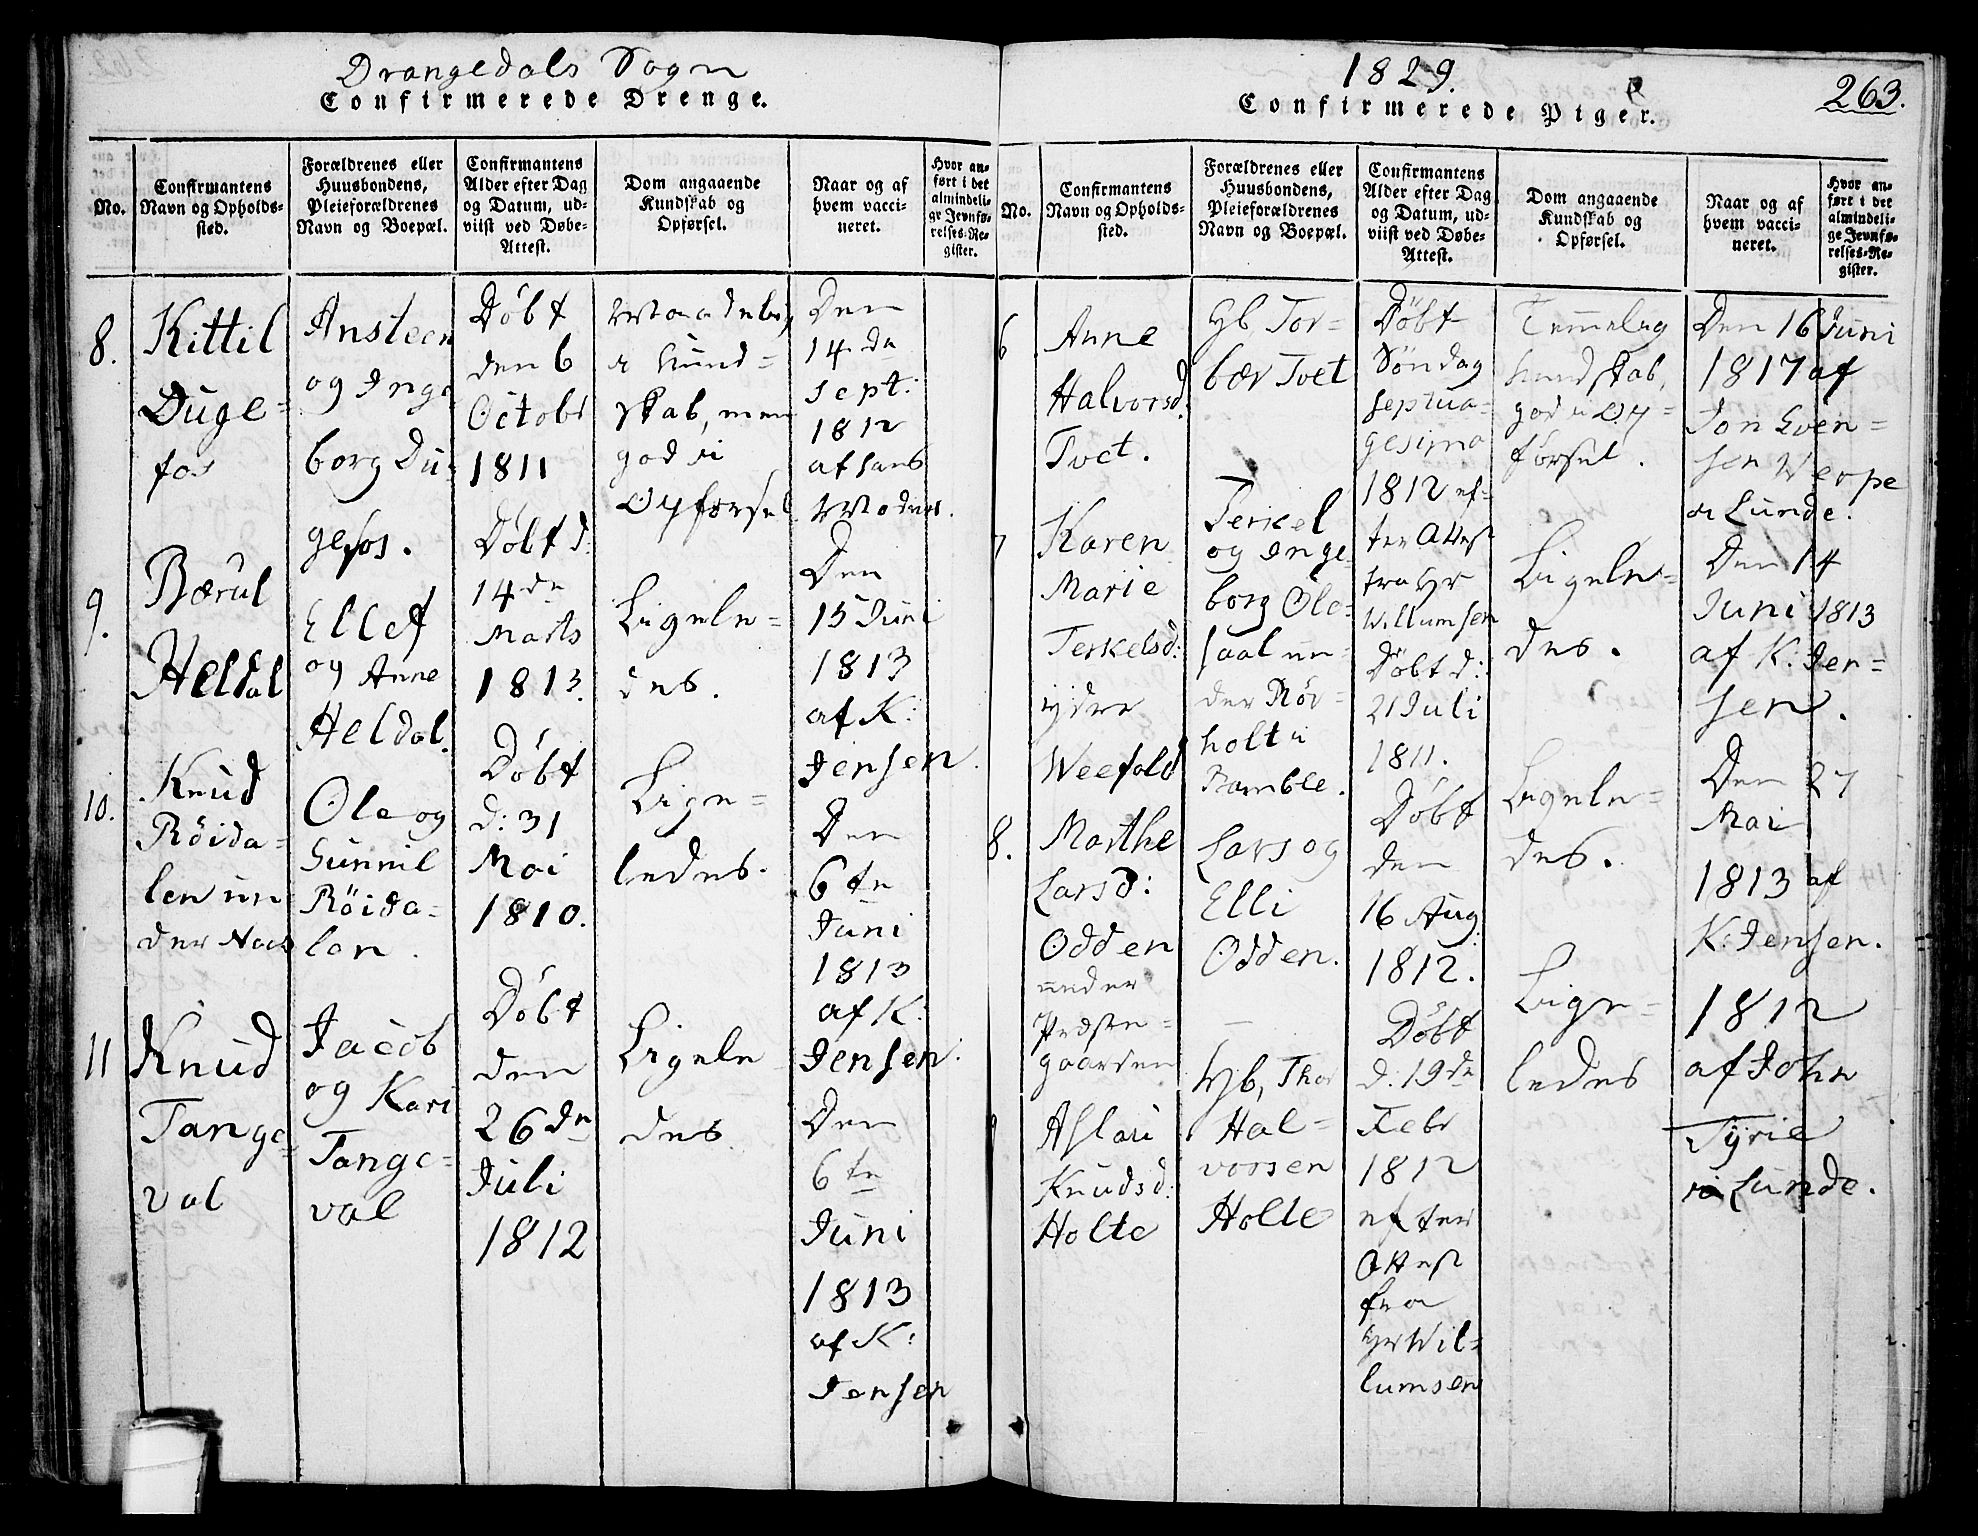 Drangedals Sogn
Confirmerede Drenge.
No.
Confirmantens
Navn og Opholds-
sted.
Forældrenes eller
Huusbondens,
Pleieforældrenes
Navn og Boepæl.
Confirmantens
Alder efter Dag
og Datum, ud-
viist ved Døbe-
Attest.
Dom angaaende
Kundskab og
Opførsel.
Naar og af
hvem vacci-
neret.
Hvor an-
ført i det
almindeli-
ge Jevnfø-
relses-Re-
gister.
8.
Kittil
Duge=
fos
Ansteen
og Inge
borg Du=
gefos.
Döbt
den 6
Octobr
1811
Maadelig
i Kund=
skab, men
god i
Opförsel
Den
14de
Sept:
1812
af hans
Moder.
9.
Bærul
Heldal
Ellef
og Anne
Heldal.
Döbt d:
14de
Marts
1813.
Ligele=
des.
Den
15 Juni
1813
af K:
Jensen.
10.
Knud
Röida=
len un
der Naas
Ole og
Gunnil
Röida=
len.
Döbt
d: 31
Mai
1810.
Lige=
ledes.
Den
6te
Juni
1813
af K:
Jensen.
11
Knud
Tange=
val
Jacob
og Kari
Tange=
val
Döbt
den
26de
Juli
1812
Ligele
des
Den
6te
Juni
1813
af K:
Jensen
1829.
263.
Confirmerede Piger.
No.
Confirmantens
Navn og Opholds-
sted.
Forældrenes eller
Huusbondens,
Pleieforældrenes
Navn og Boepæl.
Confirmantens
Alder efter Dag
og Datum, ud-
viist ved Døbe-
Attest.
Dom angaaende
Kundskab og
Opførsel.
Naar og af
hvem vacci-
neret.
Hvor an-
ført i det
almindeli-
ge Jevnfø-
relses-Re-
gister.
6
Anne
Halvorsd.
Tvet.
Hb Tor=
bær Tvet
Döbt
Söndag
septua=
gesima
1812 ef=
ter Attest
fra Hr
Willumsen
Temmelig
Kundskab,
god i Op=
försel.
Den 16 Juni
1817 af
Jon Even=
sen Verpe
i Lunde.
7
Karen
Marie
Terkelsd:
ydre
Weefald
Terkel
og Inge
borg Ole=
saal un=
der Rör=
holt i
Bamble.
Döbt d:
21 Juli
1811.
Ligele=
des.
Den 14
Juni 1813
af K: Jen=
sen.
8.
Marthe
Larsd:
Odden
under
Præste=
gaarden
Lars og
Elli
Odden.
Döbt
den
16 Aug
1812.
Ligele=
des.
Den 27
Mai
1813 af
K: Jensen.
Aslau
Knudsd:
Holte
Hb, Thor
Hal=
vorsen
Holte
Döbt
d: 19de
Febr
1812
efter
Attest
fra
Hr Wil=
lumsen
Lige=
ledes
1812
af John
Tyrie
i Lunde.